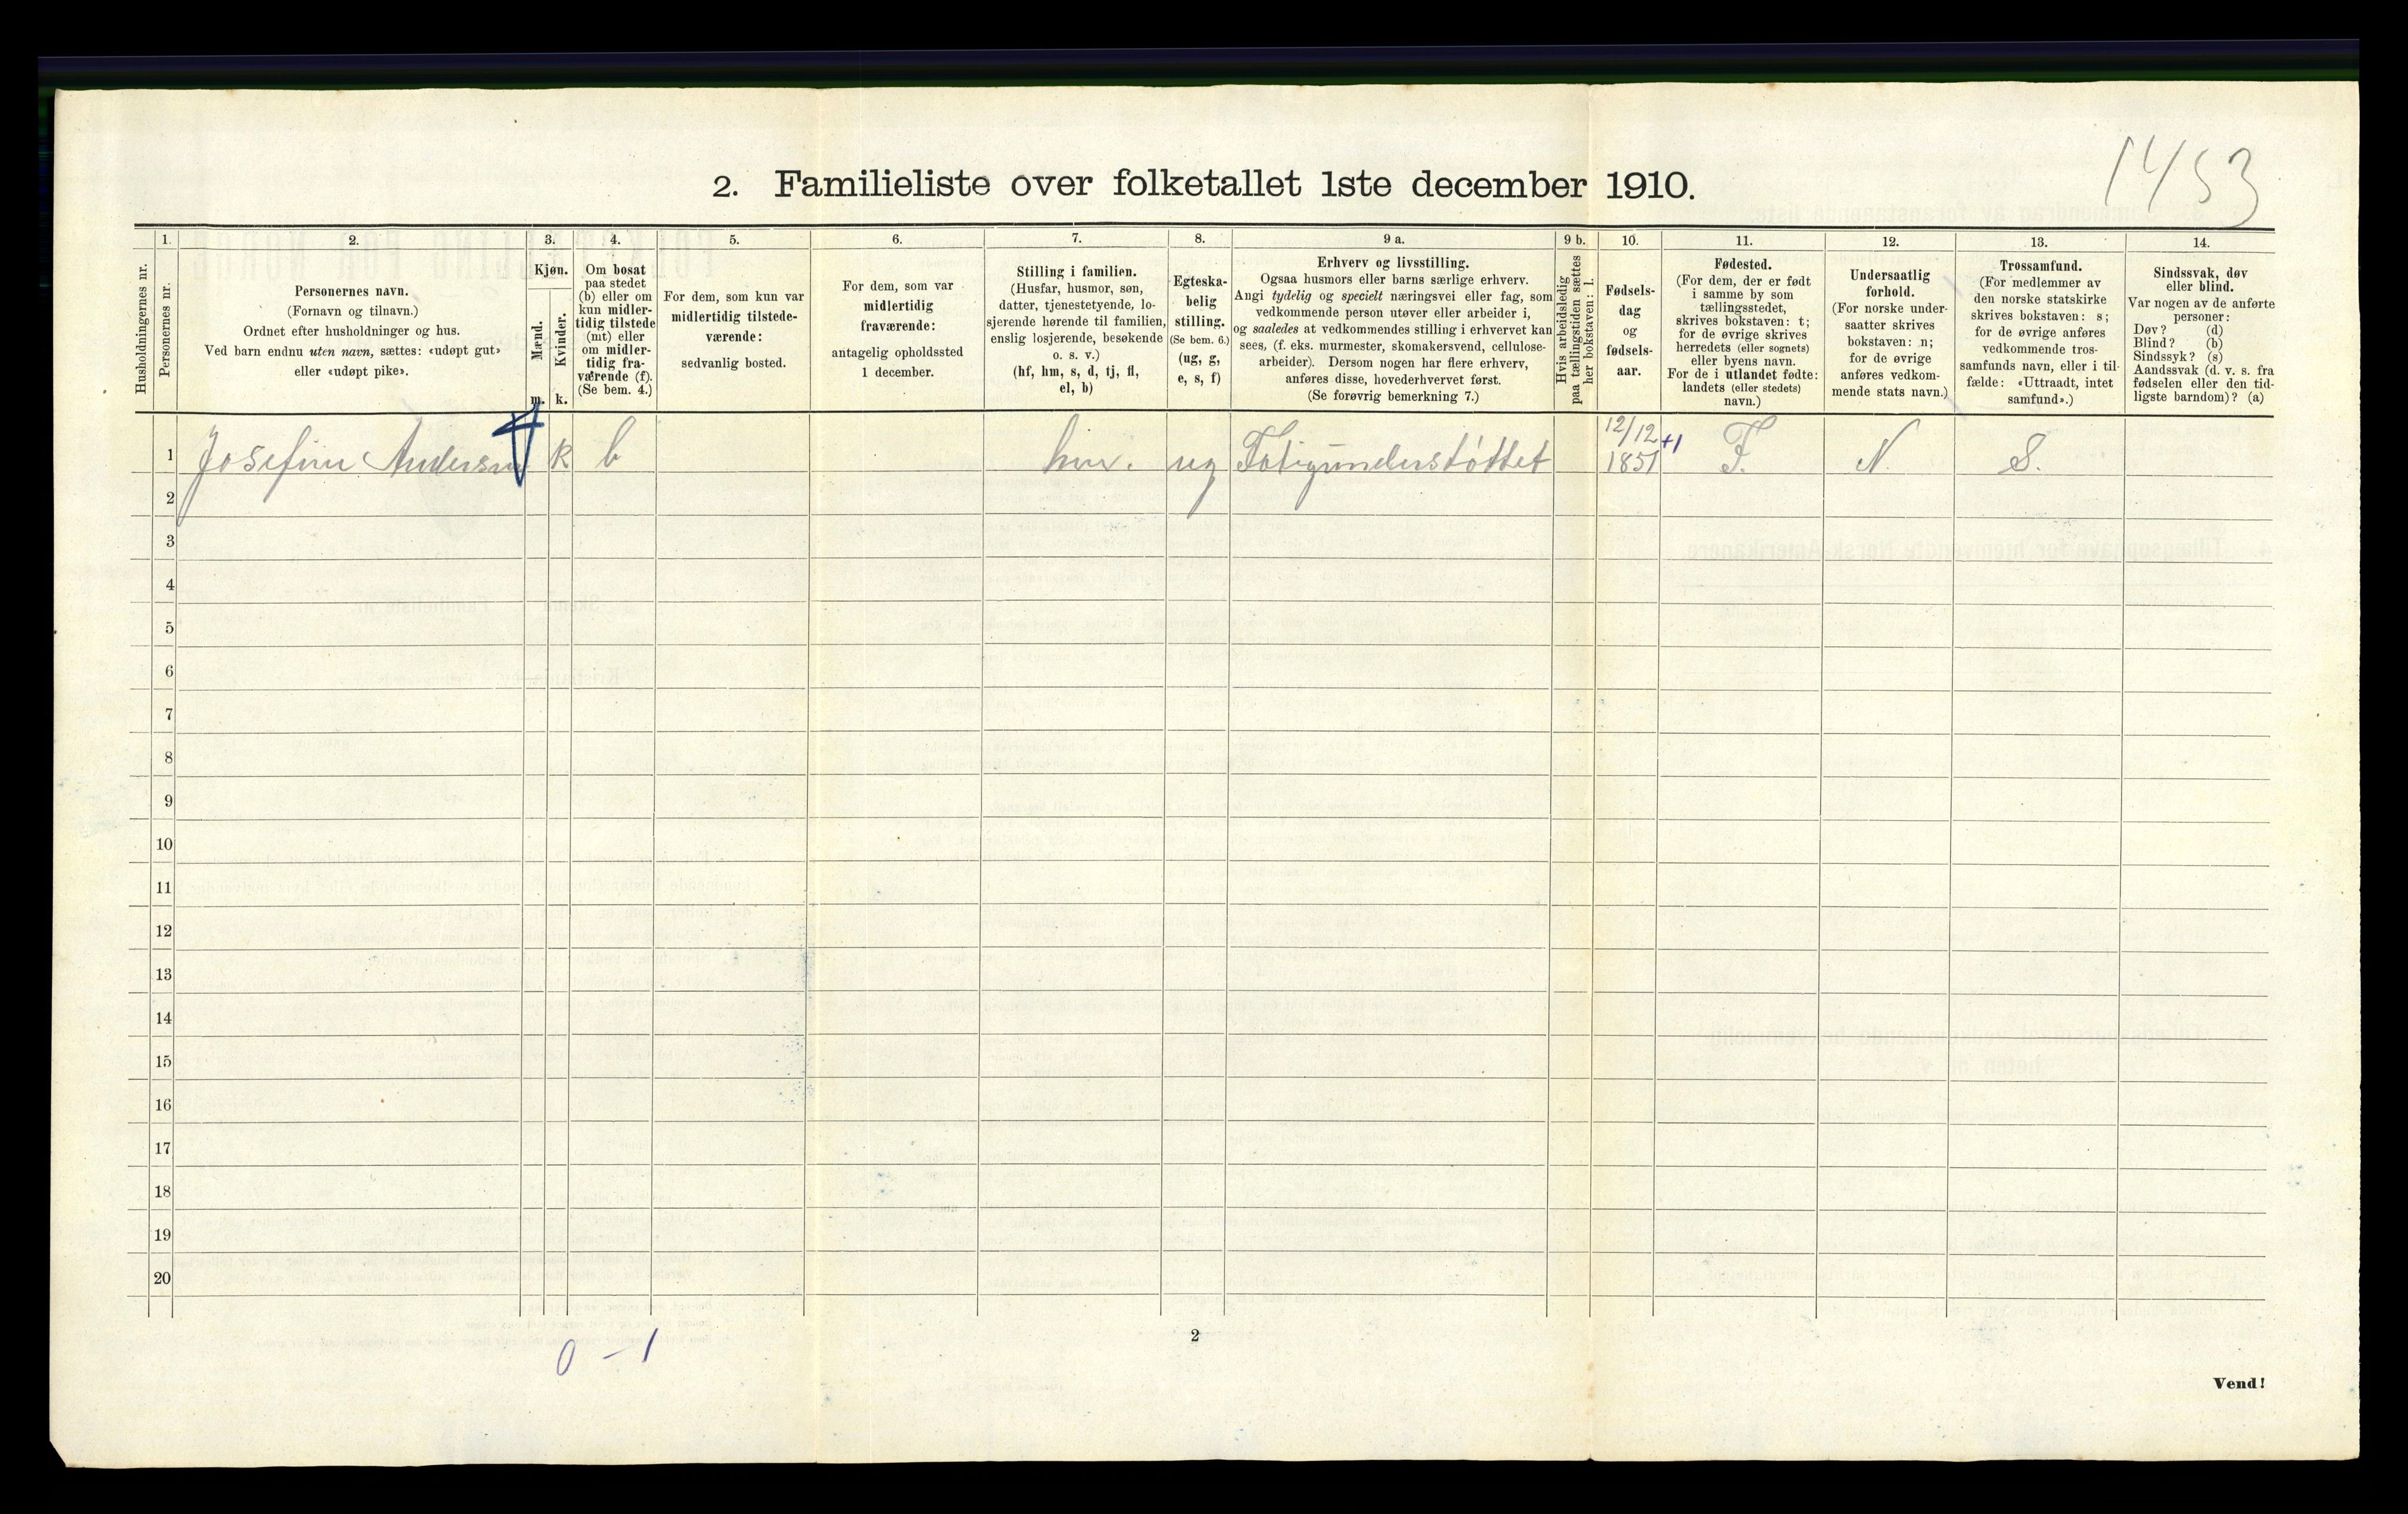 1453
2. Familieliste over folketallet 1ste december 1910.
Husholdningernes nr.
1.
Personernes nr.
2.
Personernes navn.
(Fornavn og tilnavn.)
Ordnet efter husholdninger og hus.
Ved barn endnu uten navn, sættes: «udøpt gut»
eller «udøpt pike».
3.
Kjøn.
Mænd.
m.
Kvinder.
k.
4.
Om bosat
paa stedet
(b) eller om
kun midler-
tidig tilstede
(mt) eller
om midler-
tidig fra-
værende (f).
(Se bem. 4.)
5.
For dem, som kun var
midlertidig tilstede-
værende:
sedvanlig bosted.
6.
For dem, som var
midlertidig
fraværende:
antagelig opholdssted
1 december.
7.
Stilling i familien.
(Husfar, husmor, søn,
datter, tjenestetyende, lo-
sjerende hørende til familien,
enslig losjerende, besøkende
o. s. v.)
(hf, hm, s, d, tj, fl,
el, b)
8.
Egteska-
belig
stilling.
(Se bem. 6.)
(ug, g,
e, s, f)
9 a.
Erhverv og livsstilling.
Ogsaa husmors eller barns særlige erhverv.
Angi tydelig og specielt næringsvei eller fag, som
vedkommende person utøver eller arbeider i,
og saaledes at vedkommendes stilling i erhvervet kan
sees, (f. eks. murmester, skomakersvend, cellulose-
arbeider). Dersom nogen har flere erhverv,
anføres disse, hovederhvervet først.
(Se forøvrig bemerkning 7.)
9 b.
Hvis arbeidsledig
paa tællingstiden sættes
her bokstaven: l.
10.
Fødsels-
dag
og
fødsels-
aar.
11.
Fødested.
(For dem, der er født
i samme by som
tællingsstedet,
skrives bokstaven: t;
for de øvrige skrives
herredets (eller sognets)
eller byens navn.
For de i utlandet fødte:
landets (eller stedets)
navn.)
12.
Undersaatlig
forhold.
(For norske under-
saatter skrives
bokstaven: n;
for de øvrige
anføres vedkom-
mende stats navn.)
13.
Trossamfund.
(For medlemmer av
den norske statskirke
skrives bokstaven: s;
for de øvrige anføres
vedkommende tros-
samfunds navn, eller i til-
fælde: «Uttraadt, intet
samfund».)
14.
Sindssvak, døv
eller blind.
Var nogen av de anførte
personer:
Døv? (d)
Blind? (b)
Sindssyk? (s)
Aandssvak (d. v. s. fra
fødselen eller den tid-
ligste barndom)? (a)
1 Josefine Andersen k b hm. ug Fatigunderstøttet 12/12 1851 +1 F. N. S.
2
3
4
5
6
7
8
9
10
11
12
13
14
15
16
17
18
19
20
0 – 1
2
Vend!